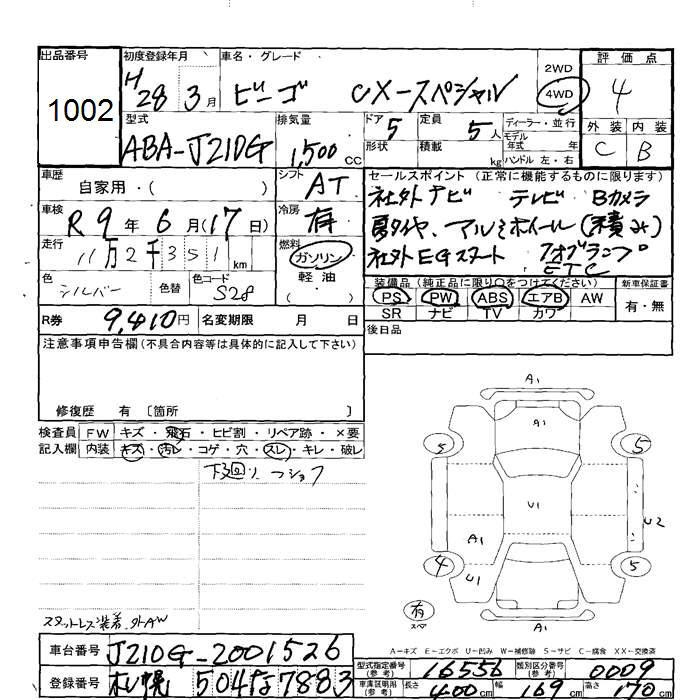 出品番号
1002
初度登録年月
H28年3月
車名・グレード
ビーゴ CX-スペシャル
2WD
4WD
評価点
4
外装 内装
C B
型式
ABA-J210G
排気量
1,500 CC
ドア 5
形状
定員 5人
積載 kg
ディーラー・並行
モデル年式 年式
ハンドル 左・右
車歴
自家用・( )
シフト
AT
セールスポイント (正常に機能するものに限ります)
社外ナビ テレビ Bカメラ
夏タイヤ、アルミホイール(積み)
社外EGスタート フォグランプ
ETC
車検
R9年6月(17日)
冷房
有
走行
11万2千351km
燃料
ガソリン
軽油
( )
色
シルバー
色替
色コード
S28
装備品 (純正品に限り〇をつけてください)
PS PW ABS エアB AW
SR ナビ TV カワ
新車保証書
有・無
R券 9,410円
名変期限 月 日
後日品
注意事項申告欄(不具合内容等は具体的に記入して下さい)
修復歴 有 〔箇所 〕
検査員 FW キズ・飛石・ヒビ割・リペア跡・×要
記入欄 内装 キズ・汚レ・コゲ・穴・スレ・キレ・破レ
下廻り
A1
A1
5 5
U1
U2
A1
4 5
U1
有
スペア
A1
スタットレス装着、外AW
A-キズ E-エクボ U-凹み W-補修跡 S-サビ C-腐食 XX-交換済
車台番号 J210G-2001526
登録番号 札幌 504 7883
型式指定番号(参考) 16556
類別区分番号(参考) 0009
車庫証明用(参考) 長さ 400cm 幅 169cm 高さ 170cm